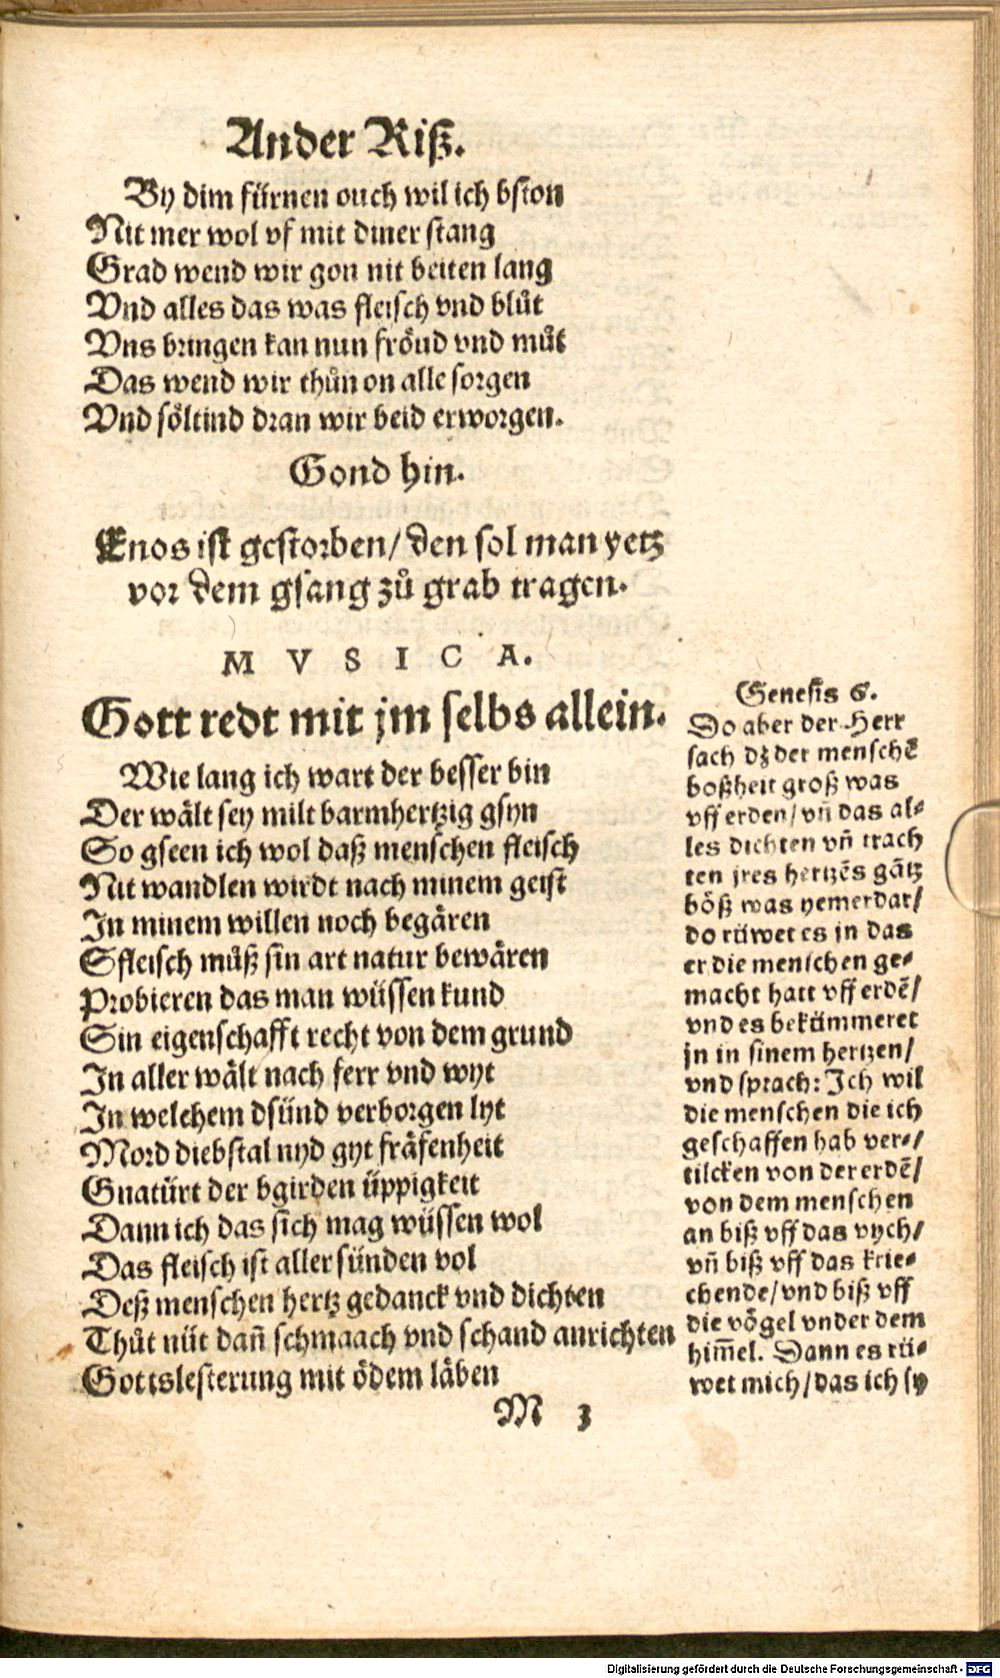 Ander Riß.
By dim fürnen ouch wil ich bston
Nit mer wol vf mit diner stang
Grad wend wir gon nit beiten lang
Vnd alles das was fleisch vnd blůt
Vns bringen kan nun fröud vnd můt
Das wend wir thůn on alle sorgen
Vnd söltind dran wir beid erworgen.
Gond hin.
Enos ist gestorben/ den sol man yetz
vor dem gsang zů grab tragen.
MVSICA.
Gott redt mit jm selbs allein.
Wie lang ich wart der besser bin
Der wält sey milt barmhertzig gsyn
So gseen ich wol daß menschen fleisch
Nit wandlen wirdt nach minem geist
In minem willen noch begären
Sfleisch můß sin art natur bewären
Probieren das man wüssen kund
Sin eigenschafft recht von dem grund
In aller wält nach ferr vnd wyt
In welchem dsünd verborgen lyt
Mord diebstal nyd gyt fräfenheit
Gnatürt der bgirden üppigkeit
Dann ich das sich mag wüssen wol
Das fleisch ist aller sünden vol
Deß menschen hertz gedanck vnd dichten
Thůt nüt dañ schmaach vnd schand anrichten
Gottslesterung mit ödem läben
M 3
Genesis 6.
Do aber der Herr
sach dz der menschē
boßheit groß was
vff erden/ vñ das al⸗
les dichten vñ trach
ten jres hertzēs gātz
böß was yemerdar/
do rüwet es jn das
er die menschen ge⸗
macht hatt vff erdē/
vnd es bekümmeret
jn in sinem hertzen/
vnd sprach: Ich wil
die menschen die ich
geschaffen hab ver⸗/
tilcken von der erdē/
von dem menschen
an biß vff das vych/
vñ biß vff das krie⸗
chende/ vnd biß vff
die vögel vnder dem
him̄el. Dann es rü⸗
wet mich/ das ich sy
Digitalisierung gefördert durch die Deutsche Forschungsgemeinschaft - DFG